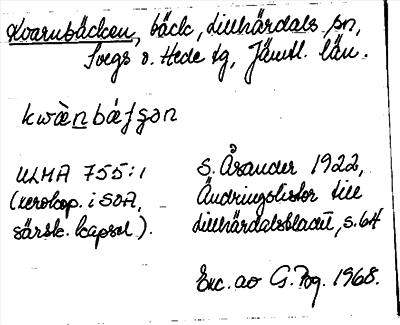 Kvarnbäcken, bäck, Lillhärdals sn,
Svegs o. Hede tg, Jämtl. län.
kwæ̀nbáʃʂən
ULMA 755:1
(xerokop. i SOA,
särsk. kapsel).
S. Åsander 1922,
Ändringslistor till
Lillhärdalsbladet, s. 64
Exc. av G. Pg. 1968.